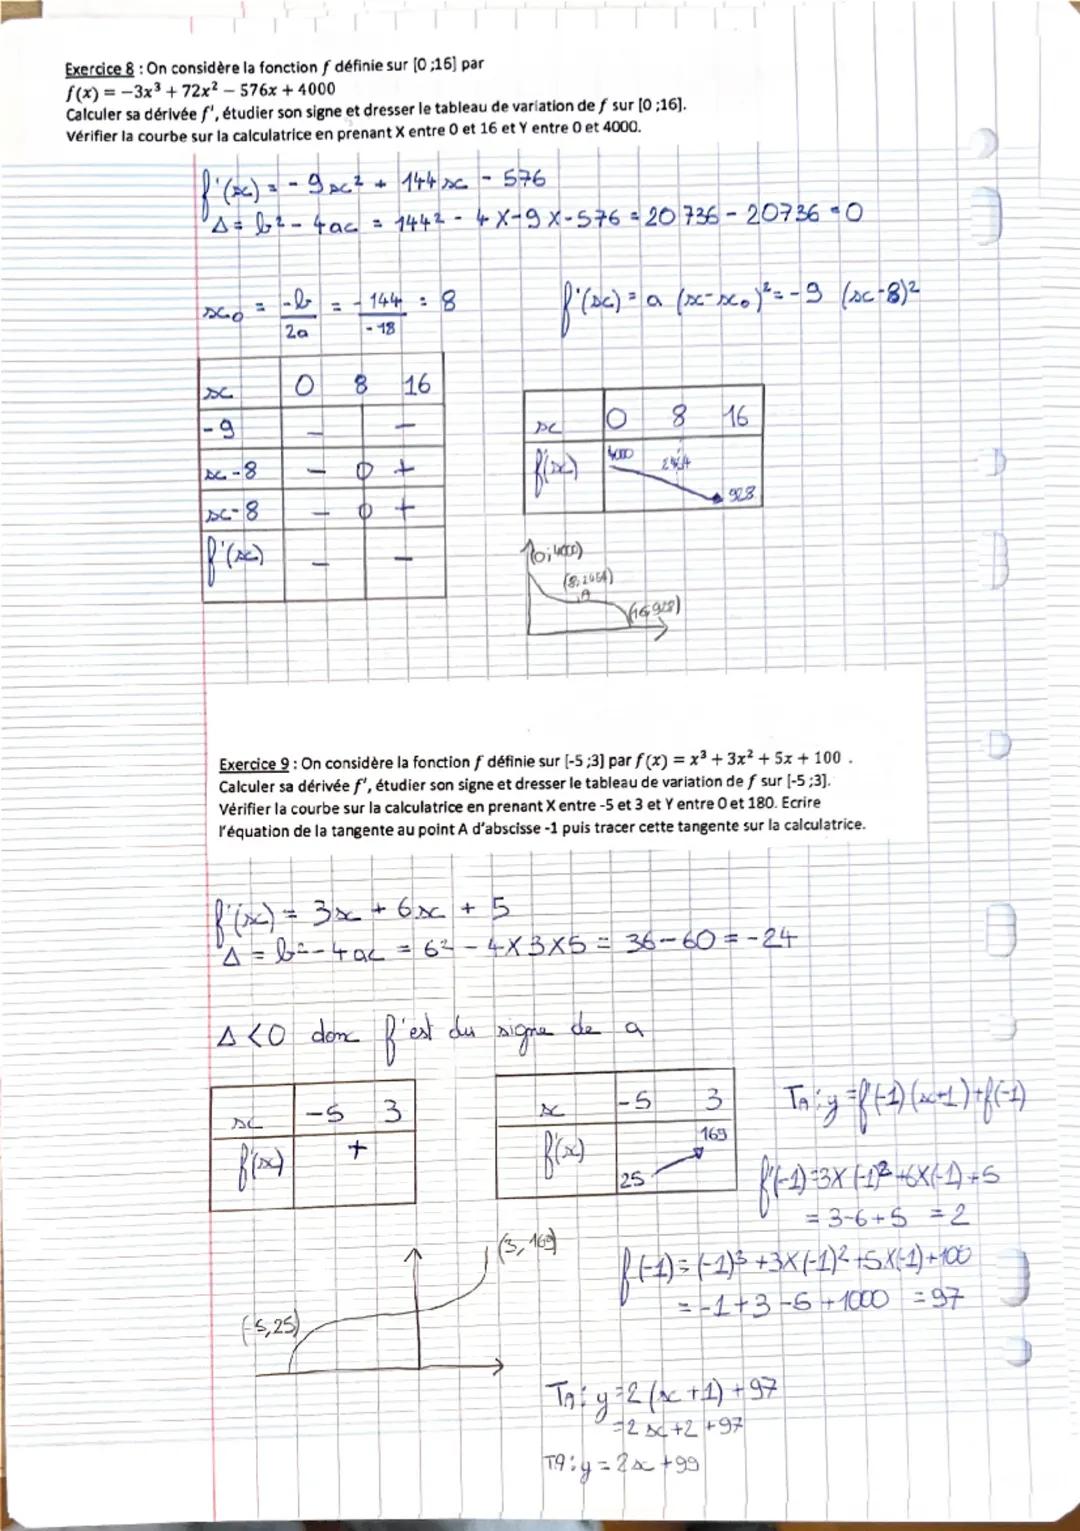 Exercice 8 : On considère la fonction f définie sur [0 ;16] par
f(x) = −3x³ + 72x² − 576x + 4000
Calculer sa dérivée f', étudier son signe et dresser le tableau de variation de f sur [0 ;16].
Vérifier la courbe sur la calculatrice en prenant X entre 0 et 16 et Y entre 0 et 4000.
f'(x) = - 9x² + 144x - 576
Δ = b² - 4ac = 144² - 4 X-9 X-576 = 20 736 - 20736 = 0
x₀ = -b/2a = -144/-18 = 8
f'(x) = a (x-x₀)² = -9 (x-8)²
x 0 8 16
-9 - -
x-8 - 0 +
x-8 - 0 +
f'(x) - -
x 0 8 16
f(x) 4000 928
(0;4000)
A
(16,928)
Exercice 9 : On considère la fonction f définie sur [-5 ;3] par f(x) = x³ + 3x² + 5x + 100 .
Calculer sa dérivée f', étudier son signe et dresser le tableau de variation de f sur [-5 ;3].
Vérifier la courbe sur la calculatrice en prenant X entre -5 et 3 et Y entre 0 et 180. Ecrire
l'équation de la tangente au point A d'abscisse -1 puis tracer cette tangente sur la calculatrice.
f'(x) = 3x + 6x + 5
Δ = b² - 4ac = 6² - 4X3X5 = 36-60 = -24
Δ <0 donc f'est du signe de a
x -5 3
f'(x) +
x -5 3
f(x) 25 169
TA : y = f'(-1)(x+1)+f(-1)
f'(-1)=3X(-1)²+6X(-1)+5
= 3-6+5 = 2
f(-1)= (-1)³+3X(-1)²+5X(-1)+100
= -1+3-5+1000 = 97
(3,169)
(-5,25)
TA : y=2(x+1)+97
=2x+2+97
TA : y = 2x+99